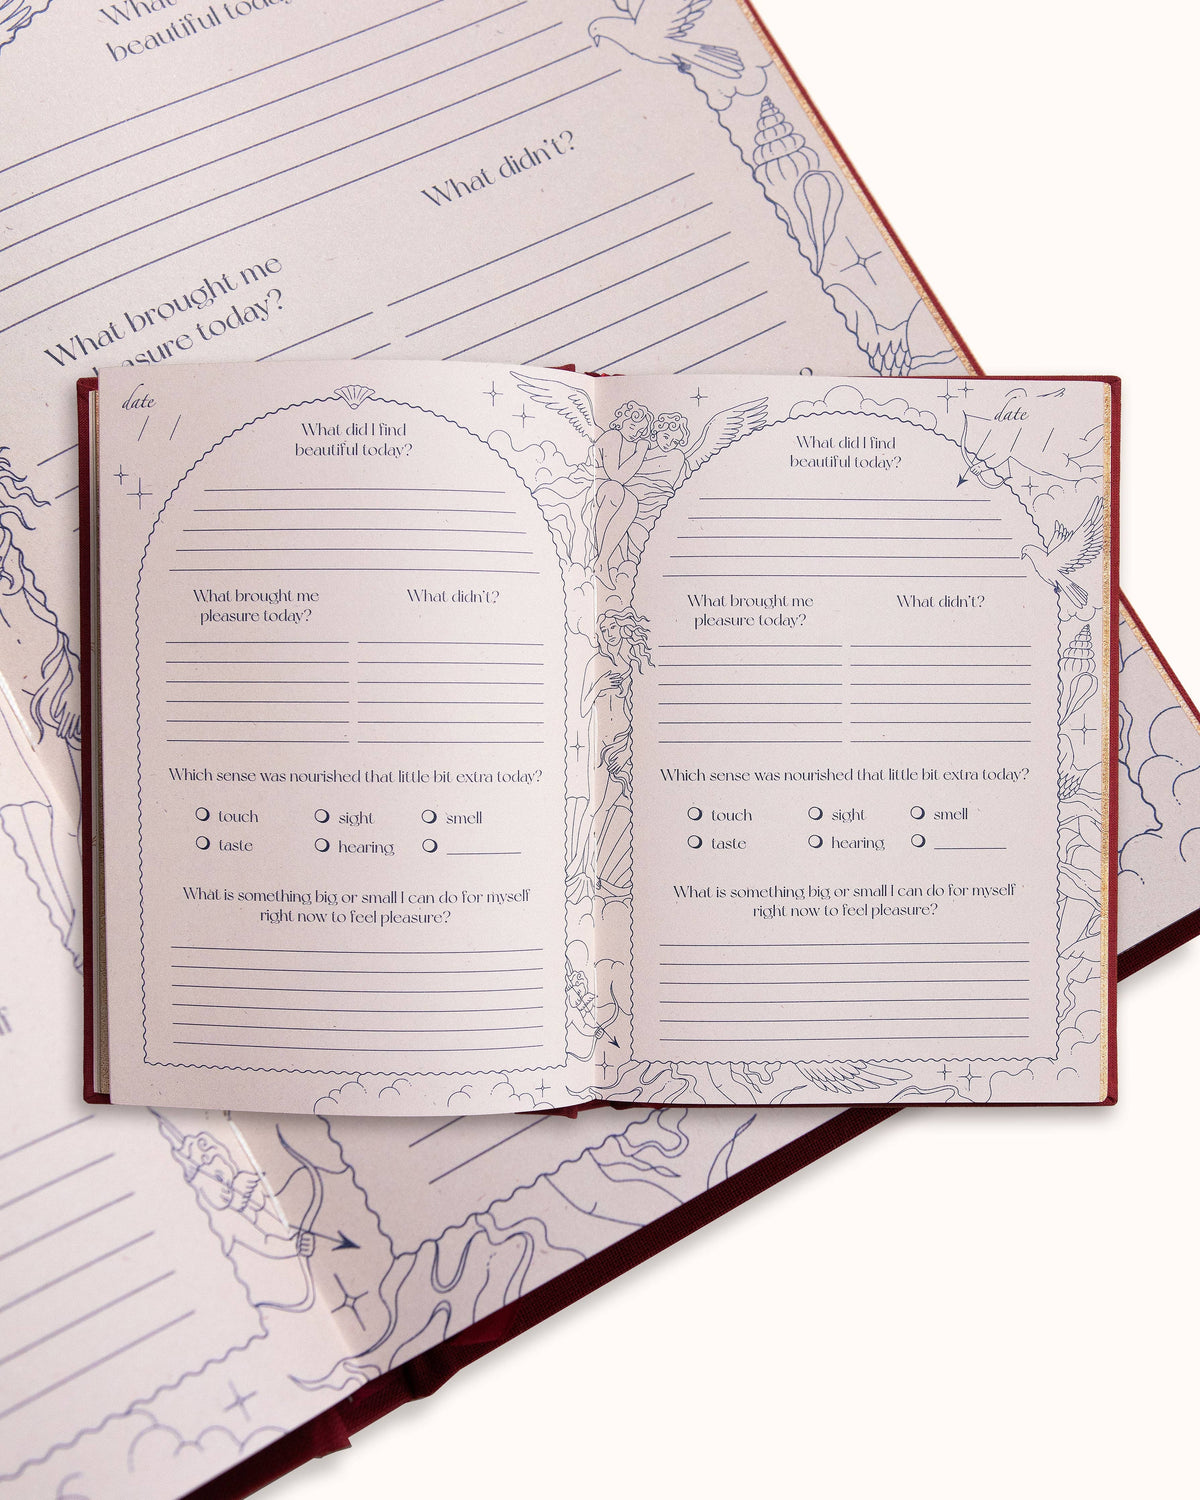 What
beautiful today
What didn't?
What brought me
pleasure today?
date
/ /
What did I find
beautiful today?
What brought me
pleasure today?
What didn't?
Which sense was nourished that little bit extra today?
touch
sight
smell
taste
hearing
What is something big or small I can do for myself
right now to feel pleasure?
date
/ /
What did I find
beautiful today?
What brought me
pleasure today?
What didn't?
Which sense was nourished that little bit extra today?
touch
sight
smell
taste
hearing
What is something big or small I can do for myself
right now to feel pleasure?